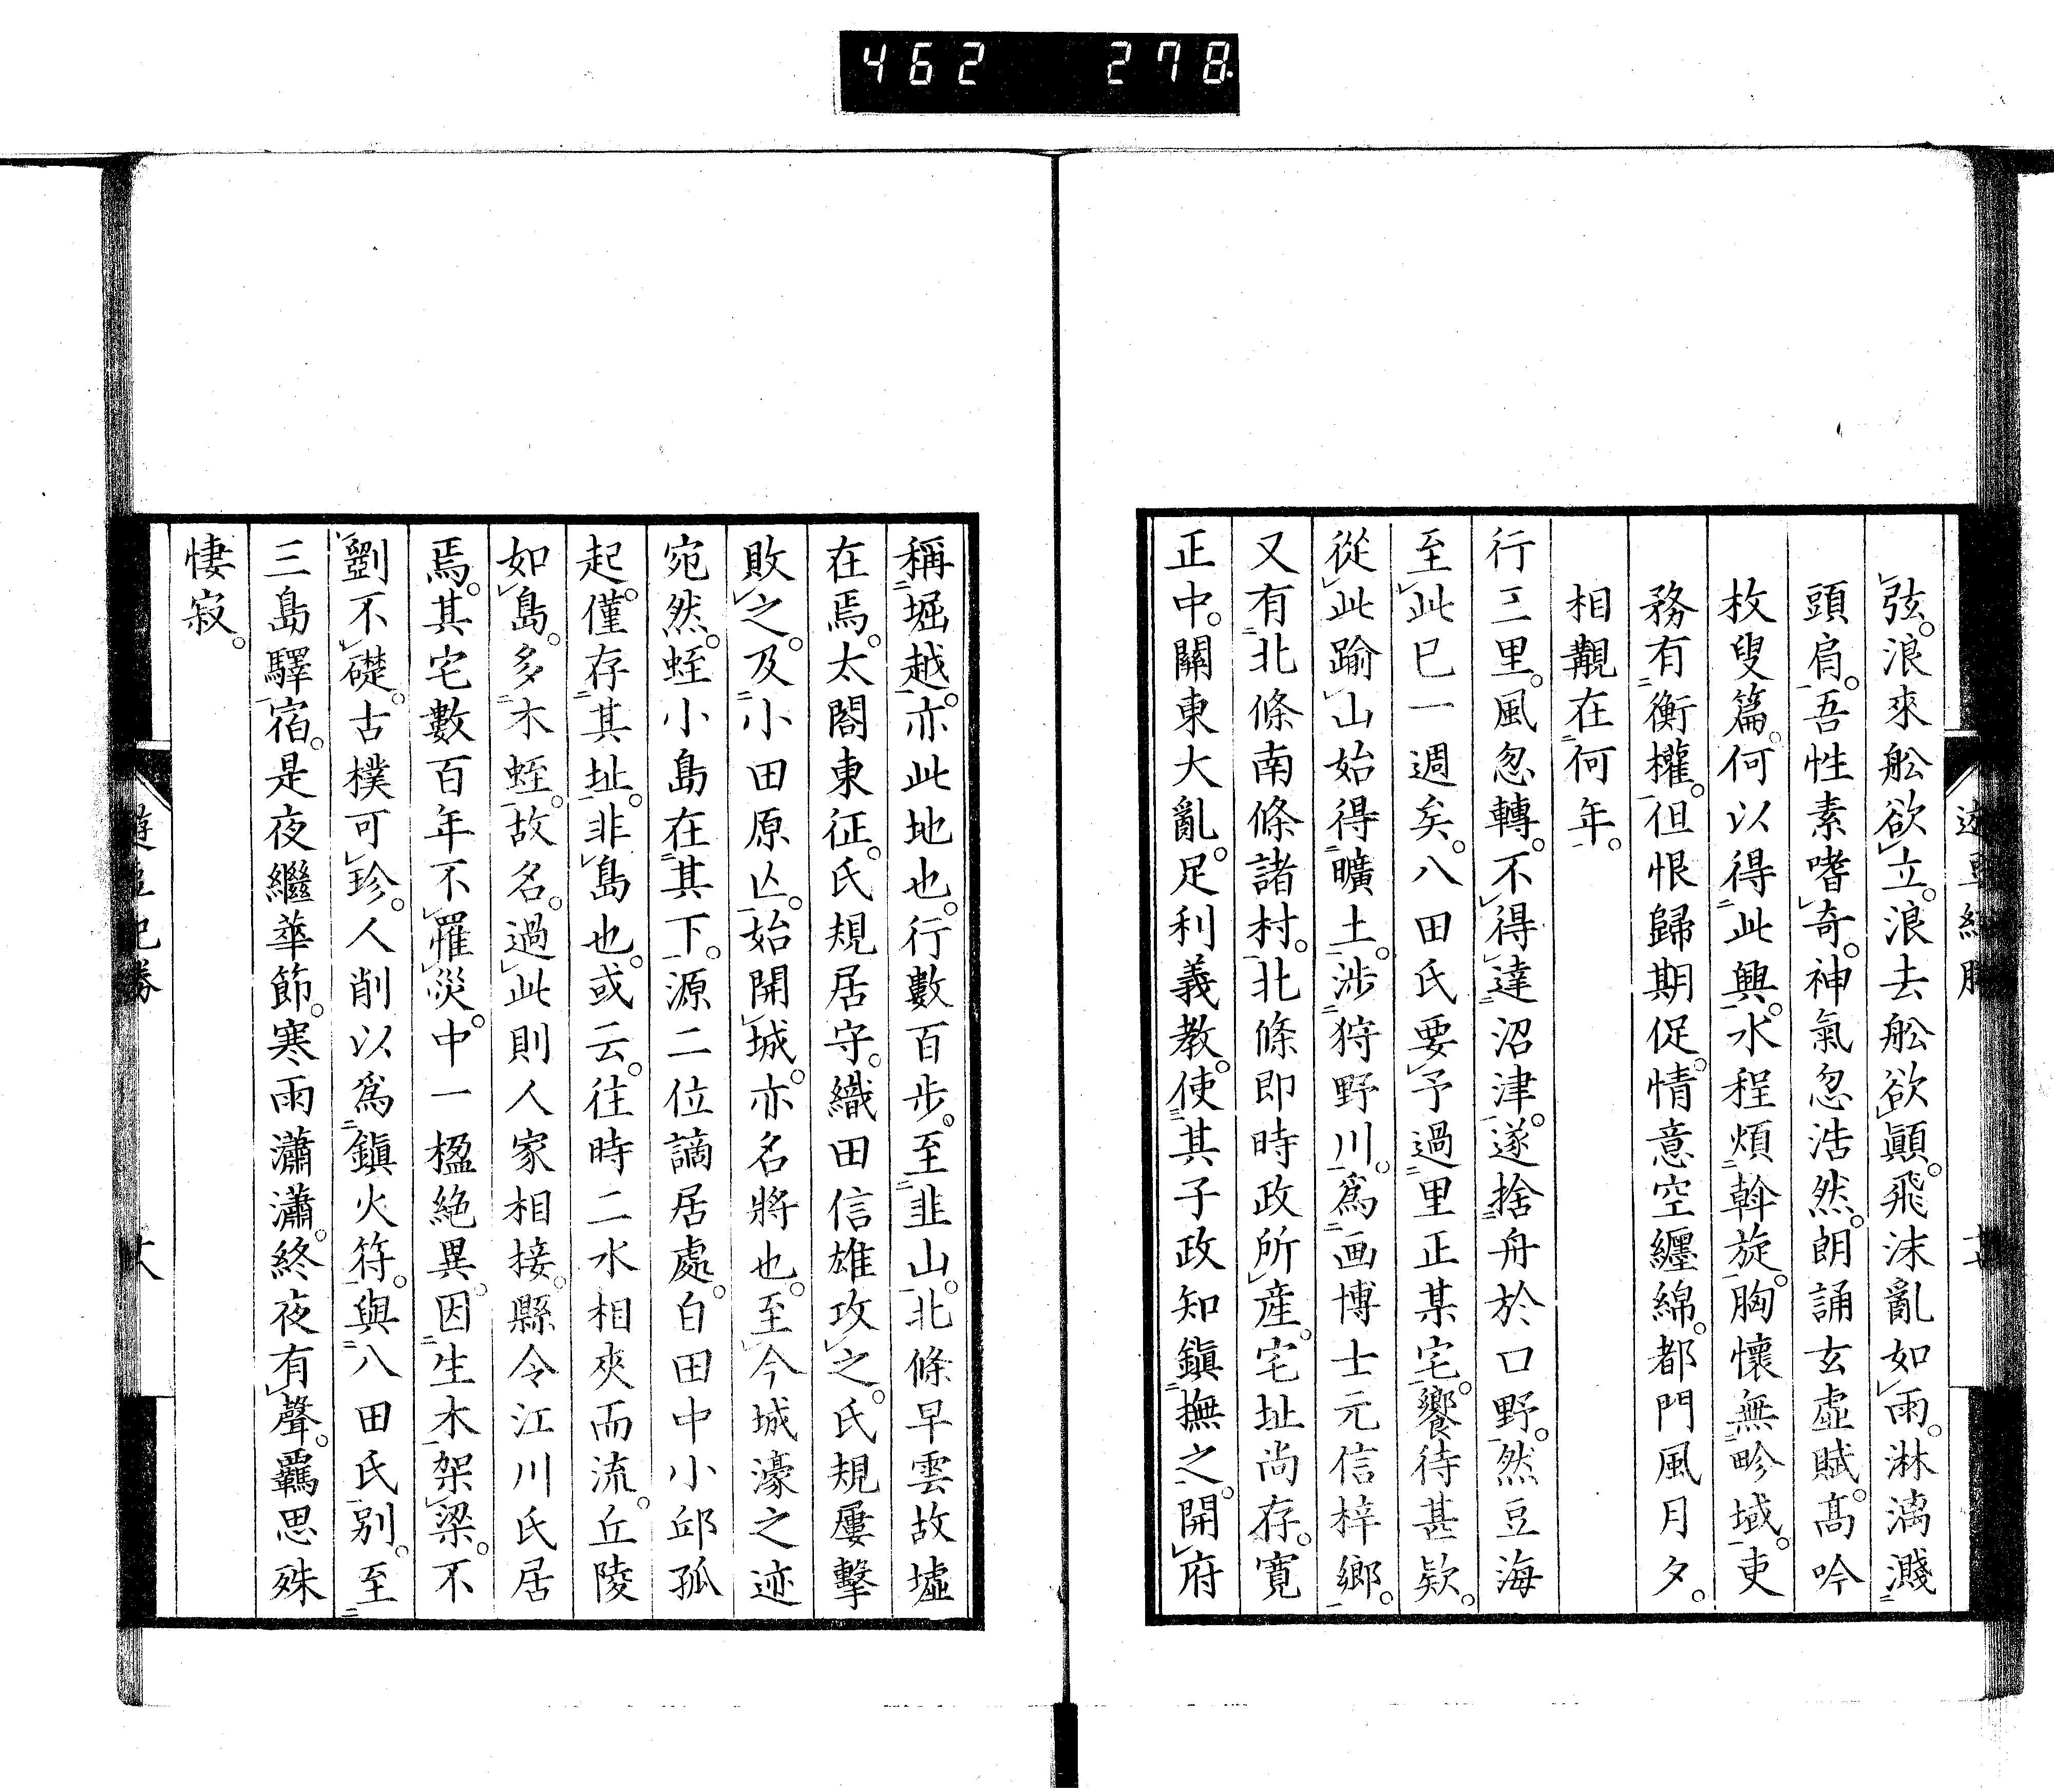 462 278
弦。浪來舩欲立。浪去舩欲顚。飛沫亂如雨。淋漓濺
頭肩。吾性素嗜奇。神氣忽浩然。朗誦玄虛賦。高吟
枚叟篇。何以得此興。水程煩斡旋。胸懷無畛域。吏
務有衡權。但恨歸期促。情意空纏綿。都門風月夕。
相覯在何年。
行三里。風忽轉。不得達沼津。遂捨舟於口野。然豆海
至此已一週矣。八田氏要予過里正某宅。饗待甚欵。
從此踰山始得曠土。涉狩野川。爲画博士元信梓鄉。
又有北條南條諸村。北條即時政所產。宅址尚存。寬
正中。關東大亂。足利義教。使其子政知鎭撫之。開府
稱堀越。亦此地也。行數百步。至韭山。北條早雲故墟
在焉。太閤東征。氏規居守。織田信雄攻之。氏規屢擊
敗之。及小田原亾。始開城。亦名將也。至今城濠之迹
宛然。蛭小島在其下。源二位謫居處。白田中小邱孤
起。僅存其址。非島也。或云。往時二水相夾而流。丘陵
如島。多木蛭。故名。過此則人家相接。縣令江川氏居
焉。其宅數百年不罹災。中一楹絶異。因生木架梁。不
劉不礎。古樸可珍。人削以爲鎭火符。與八田氏別。至
三島驛宿。是夜繼華節。寒雨瀟瀟。終夜有聲。羈思殊
悽寂。